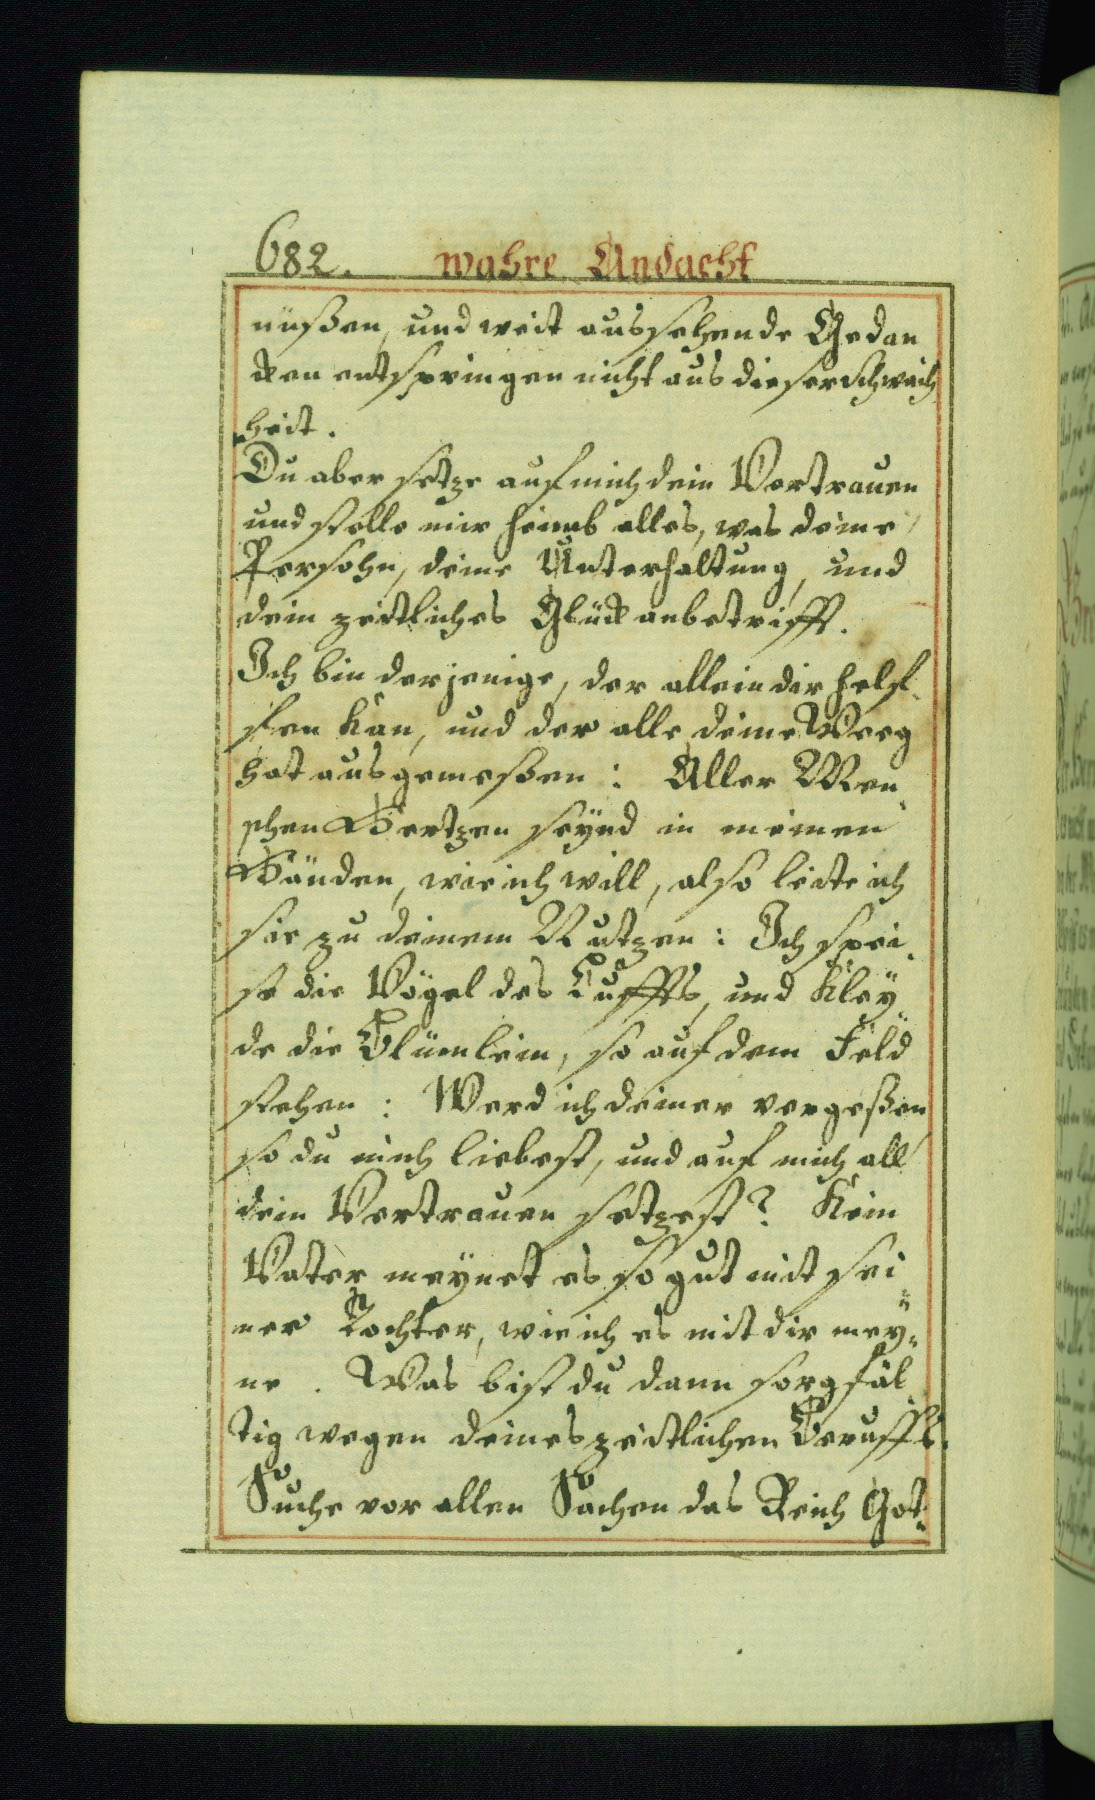 682. wahre Andacht
nüßen, und weit aussehende Gedan
cken entspringen nicht aus dieser schwach
heit.
Du aber setze auf mich dein Vertrauen
und stelle mir heimb alles, was deine
Persohn, deine Unterhaltung, und
dein zeitliches Glück anbetrifft.
Ich bin derjenige, der allein dir helf
fen kan, und der alle deine Weeg
hat ausgemeßen: Aller Men
schen Hertzen seynd in meinen
Händen, wie ich will, also leite ich
sie zu deinem Nutzen: Ich spei
se die Vögel des Luffts, und kley
de die Blümlein, so auf dem Feld
stehen: Werd ich deiner vergeßen
so du mich liebest, und auf mich all
dein Vertrauen setzest? Kein
Vater meynet es so gut mit sei
ner Tochter, wie ich es mit dir mey=
ne. Was bist du dann sorgfäl
tig wegen deines zeitlichen Beruffs.
Suche vor allen Sachen das Reich Got=